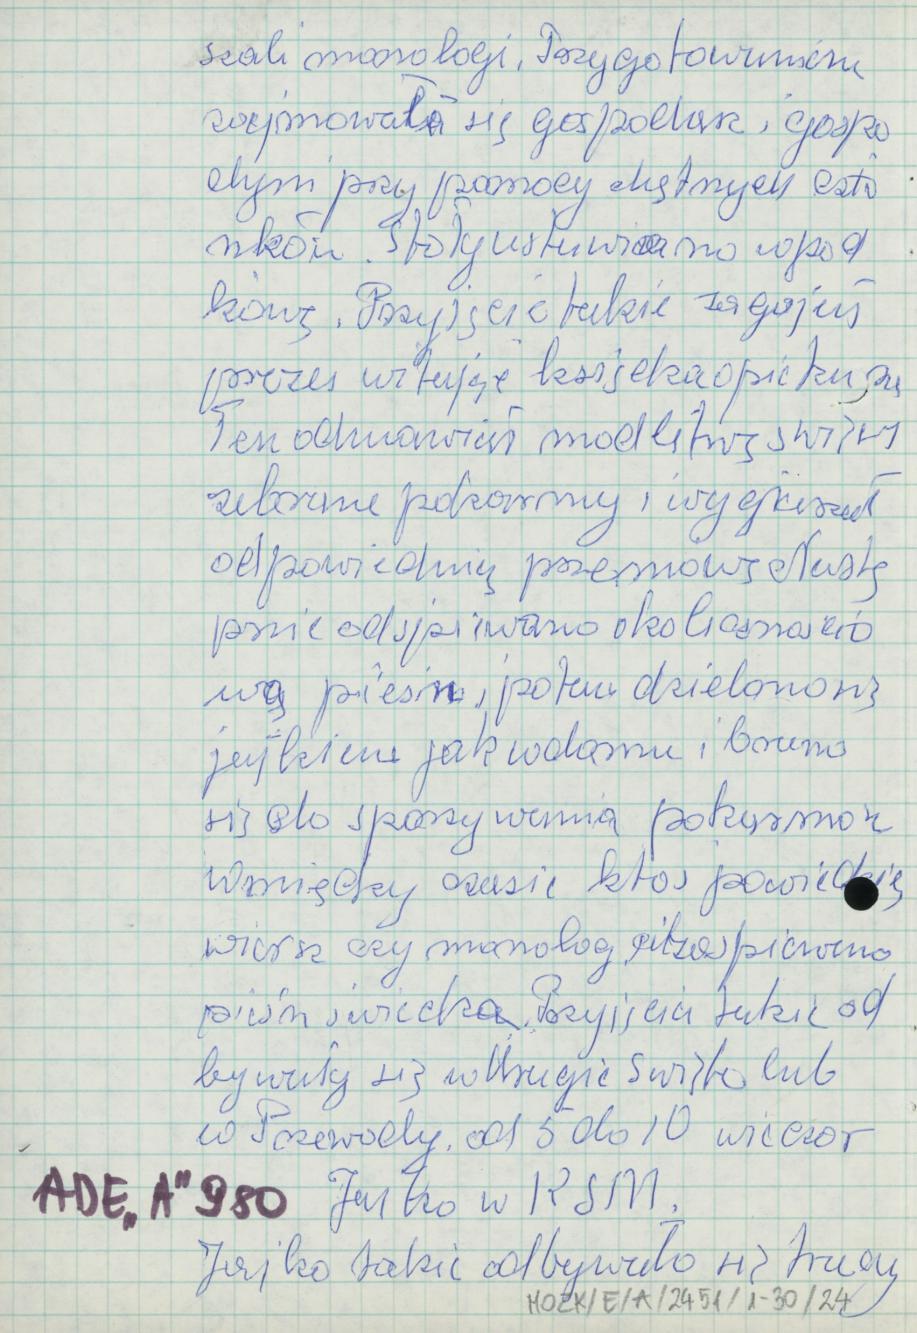 szali monologi. Przygotowaniem
zajmowała się gospodarz i gospo
dyni przy pomocy chętnych czło
nków. Stoły ustawiano w pod
kowę. Przyjęcie takie zagajał
prezes witając księdza opiekuna
Ten odmawiał modlitwę święcił
zebrane pokarmy i wygłaszał
odpowiednią przemowę Nastę
pnie odśpiewano okolicznościo
wą pieśń, potem dzielono się
jajkiem jak w domu i brano
się do spożywania pokarmów
W między czasie ktoś powiedzia
wiersz czy monolog, pitzaśpiewano
pieśń świecką. Przyjęcia takie od
bywały się w drugie Święto lub
w Przewody. od 5 do 10 wieczor
ADE „A" 980 Jajko w KSM.
Jajko takie odbywało się tracy
MOZK/E/A/2451/1-30/24